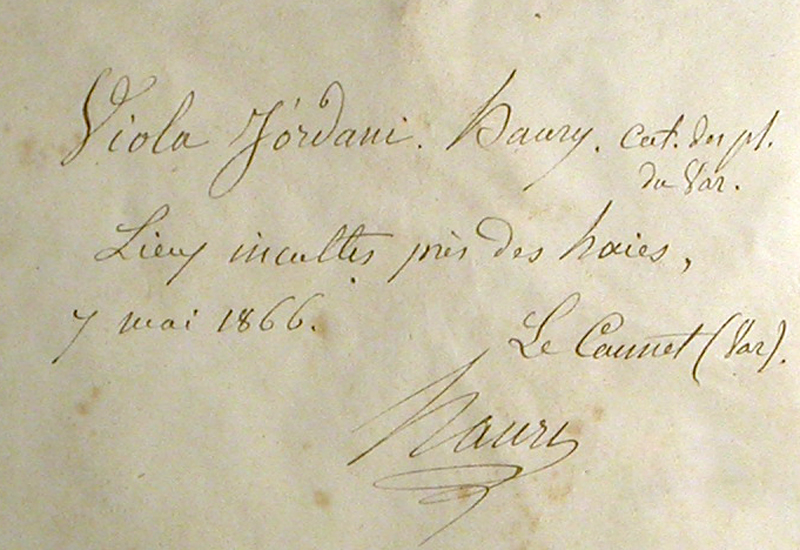 Viola Jórdani. Hanry. cat. des pl.
du Var.
Lieux incultes près des haies,
7 mai 1866.
Le Cannet (Var).
Hanry